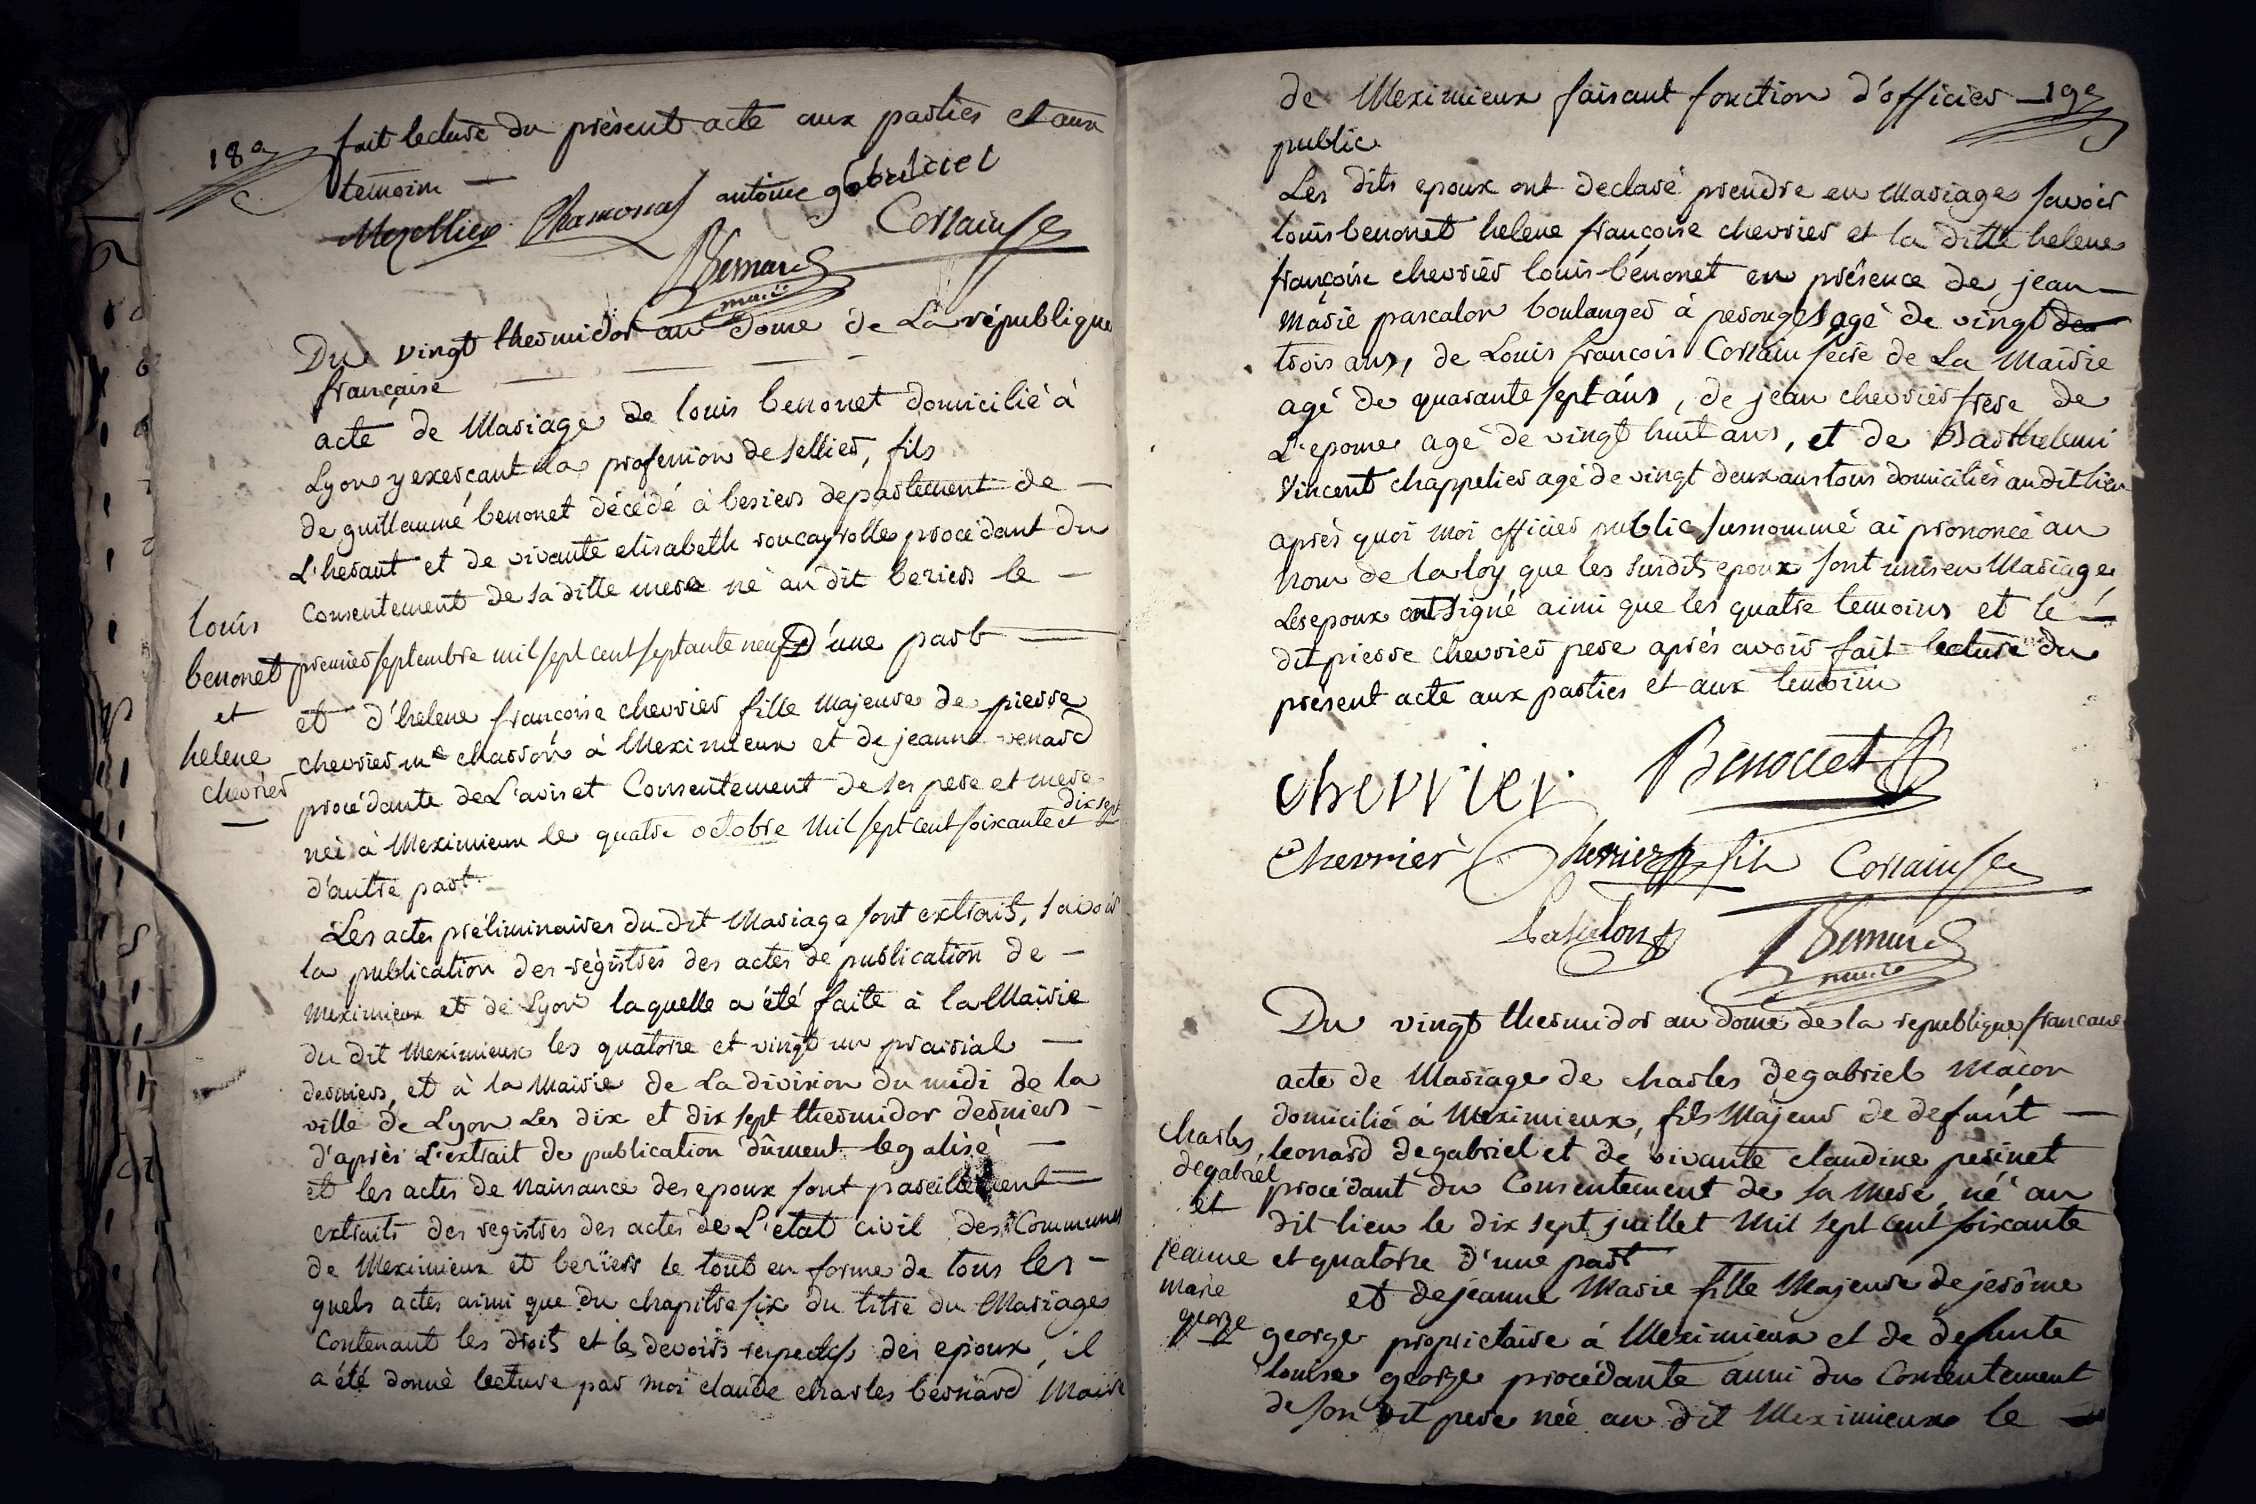 18e
fait lecture du présent acte aux parties et aux
temoins
antoine gabeliciel
Corrain
Bernard
maire
Du vingt thermidor an douze de La république
française
acte de Mariage de louis benonet domicilié à
Lyon y exercant la profession de sellier, fils
de guillaumé benonet décédé à besiers departement de
L'heraut et de vivante elisabeth roucayrolle procédant du
Consentement de sa ditte mere né au dit beziers le
premier septembre mil sept cent septante neuf D'une part
louis
benonet
et
helene
chevrier
et d'helene françoise chevrier fille Majeure de pierre
chevrier me charron à Meximieux et de jeanne venard
procédante de L'avis et Consentement de ses pere et mere
née à Meximieux le quatre octobre Mil sept cent soixante et dix sept
d'autre part
Les actes préliminaires du dit Mariage sont extraits, savoir
la publication des régistres des actes de publication de
Meximieux et de Lyon laquelle a été faite à la Mairie
du dit Meximieux les quatorze et vingt un prairial
derniers, et à la Mairie de La division du midi de la
ville de Lyon Les dix et dix sept thermidor derniers
d'après L'extrait de publication dûment legalisé
et les actes de Naissance des epoux sont pareillement
extraits des registres des actes de L'etat civil des Communes
de Meximieux et beziers le tout en forme de tous les
quels actes ainsi que du chapitre six du titre du Mariage
Contenant les droits et les devoirs respectifs des epoux, il
a été donné lecture par moi claude charles bernard Maire
19e
de Meximieux faisant fonction d'officier
public
Les dits epoux ont declaré prendre en Mariage savoir
louis benonet helene françoise chevrier et la ditte helene
françoise chevrier louis benonet en présence de jean
Marie pascalon boulanger à perouges agé de vingt
trois ans, de Louis francois Corrain secre de La Mairie
agé de quarante sept ans, de jean chevrier frere de
L'epouse agé de vingt huit ans, et de Barthelemi
Vincent chappelier agé de vingt deux ans tous domiciliés au dit lieu
après quoi moi officier public susnommé ai prononcé au
Nom de la loy que les susdits epoux sont unis en Mariage,
Les epoux ont signé ainsi que les quatre temoins et le
dit pierre chevrier pere après avoir fait lecture du
présent acte aux parties et aux temoins
chervrier
Benoccet
Chevrier
Chevrier fils
Corrain
Paskalon
Bernard
maire
Du vingt thermidor an douze de la republique francaise
acte de Mariage de charles degabriel Maçon
domicilié à Meximieux, fils Majeur de defunt
leonard degabriel et de vivante claudine perinet
procédant du Consentement de sa mere, né au
dit lieu le dix sept juillet Mil sept cent soixante
et quatorze d'une part
charles
degabriel
et
jeanne
marie
george
et de jeanne Marie fille Majeure de jerôme
george proprietaire à Meximieux et de defunte
louise george procédante aussi du Consentement
de son dit pere née au dit Meximieux le